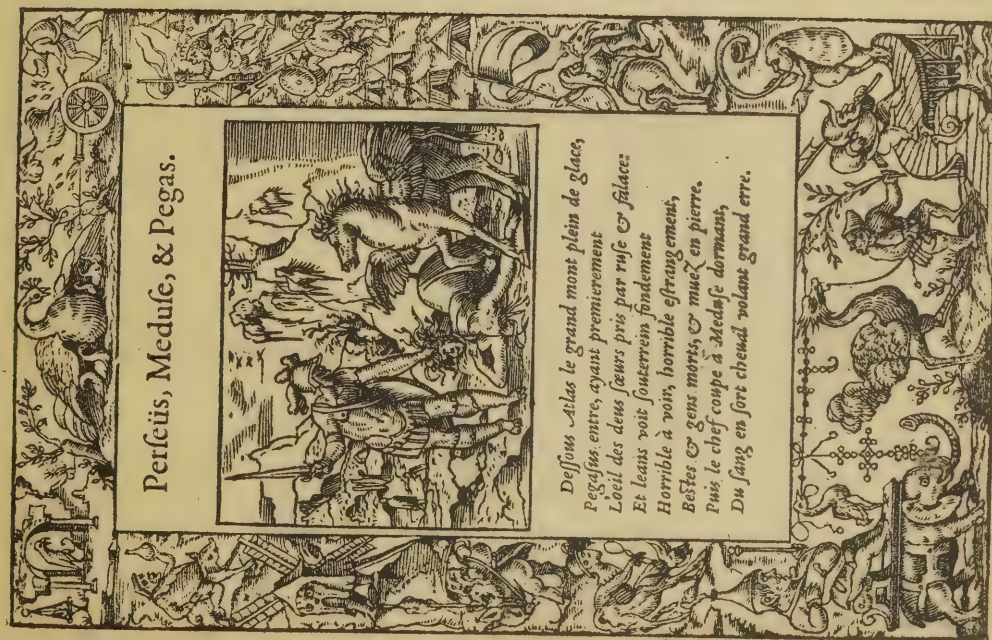 Perſeüs, Meduſe, & Pegas.
Deſſous Atlas le grand mont plein de glace,
Pegaſus entre, ayant premierement
L'oeil des deus ſœurs pris par ruſe & falace:
Et leans voit ſouterrein fondement
Horrible à voir, horrible eſtrangement,
Beſtes & gens morts, & muez en pierre.
Puis le chef coupe à Meduſe dormant,
Du ſang en ſort cheual volant grand erre.